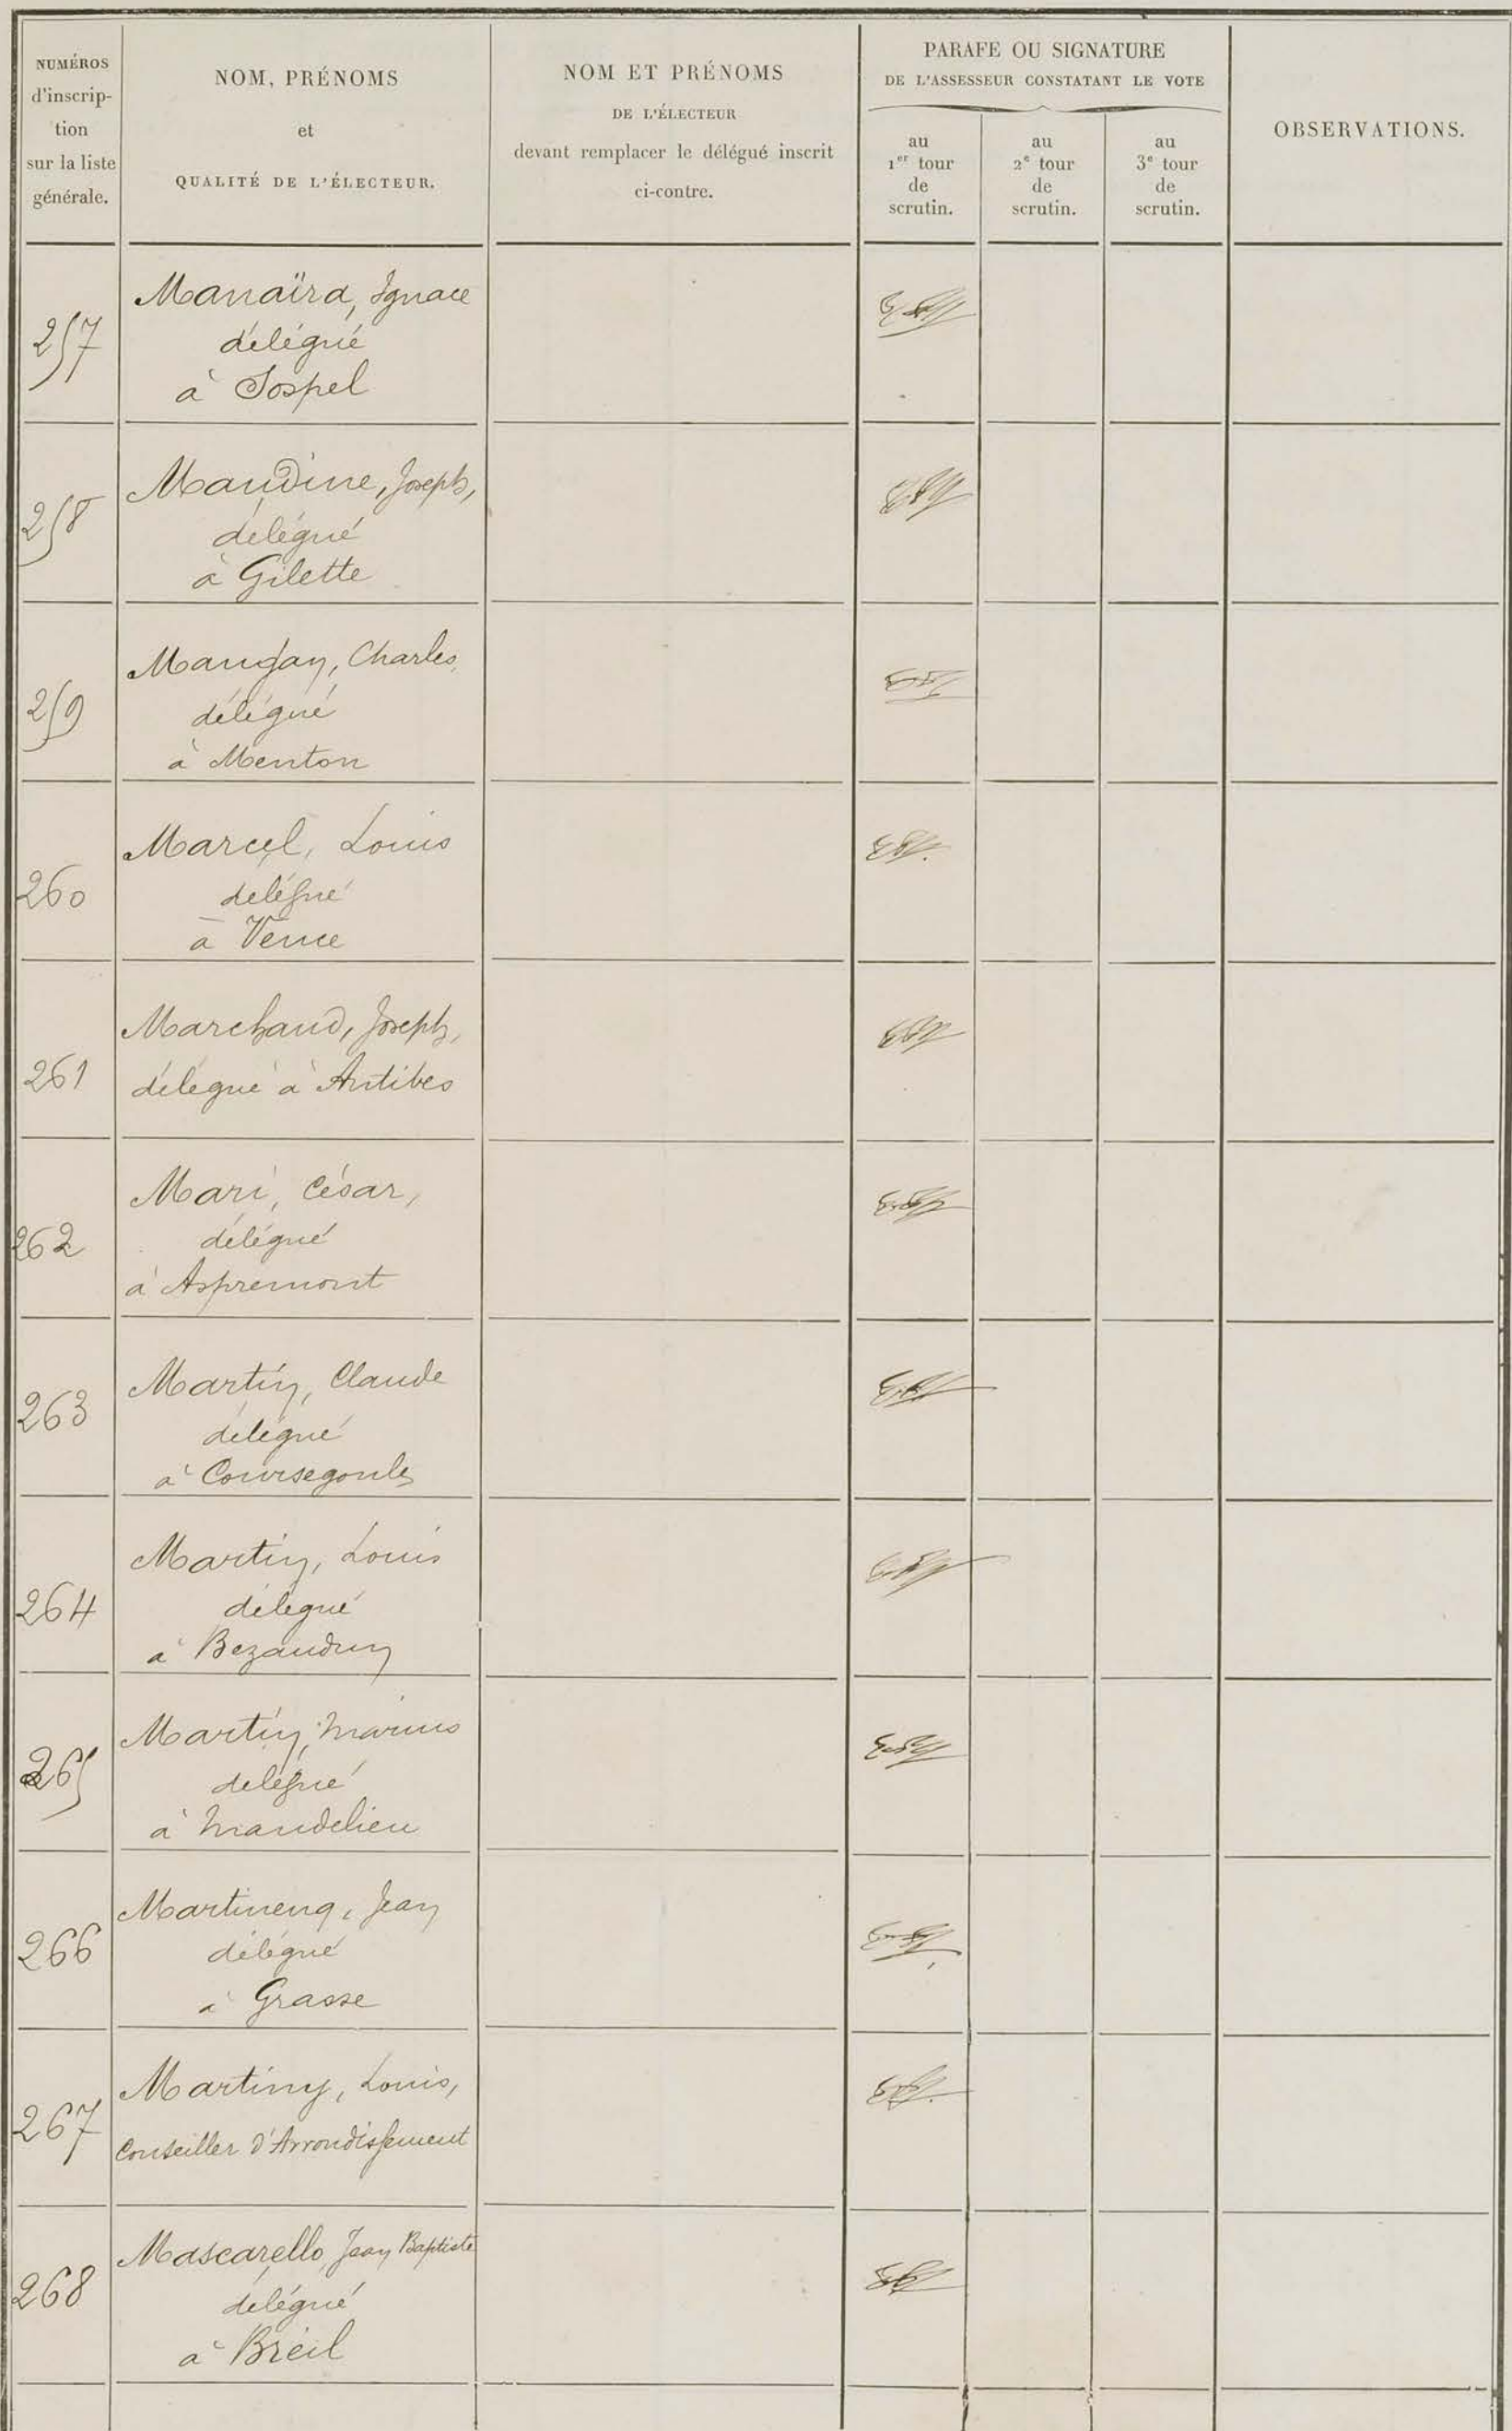 NUMÉROS
d'inscrip-
tion
sur la liste
générale.
NOM, PRÉNOMS
et
QUALITÉ DE L'ÉLECTEUR.
NOM ET PRÉNOMS
DE L'ÉLECTEUR
devant remplacer le délégué inscrit
ci-contre.
PARAFE OU SIGNATURE
DE L'ASSESSEUR CONSTATANT LE VOTE
au
1er tour
de
scrutin.
au
2e tour
de
scrutin.
au
3e tour
de
scrutin.
OBSERVATIONS.
257
Manaïra, Ignace
délégué
à Sospel
258
Maudine, Joseph,
délégué
à Gilette
259
Charles,
délégué
à Menton
260
Marcel, Louis
delégué
à Vence
261
Marchand, Joseph,
délégué à Antibes
262
Mari, César,
délégué
à Aspremont
263
Martin, Claude
délégué
à Coursegoules
264
Martin, Louis
délégué
à Bezaudun
265
Martin, Marius
delégué
à Mandelieu
266
Martinenq, Jean
délégué
à Grasse
267
Martiny, Louis,
Conseiller d'Arrondissement
268
Mascarello, Jean Baptiste
délégué
à Breil